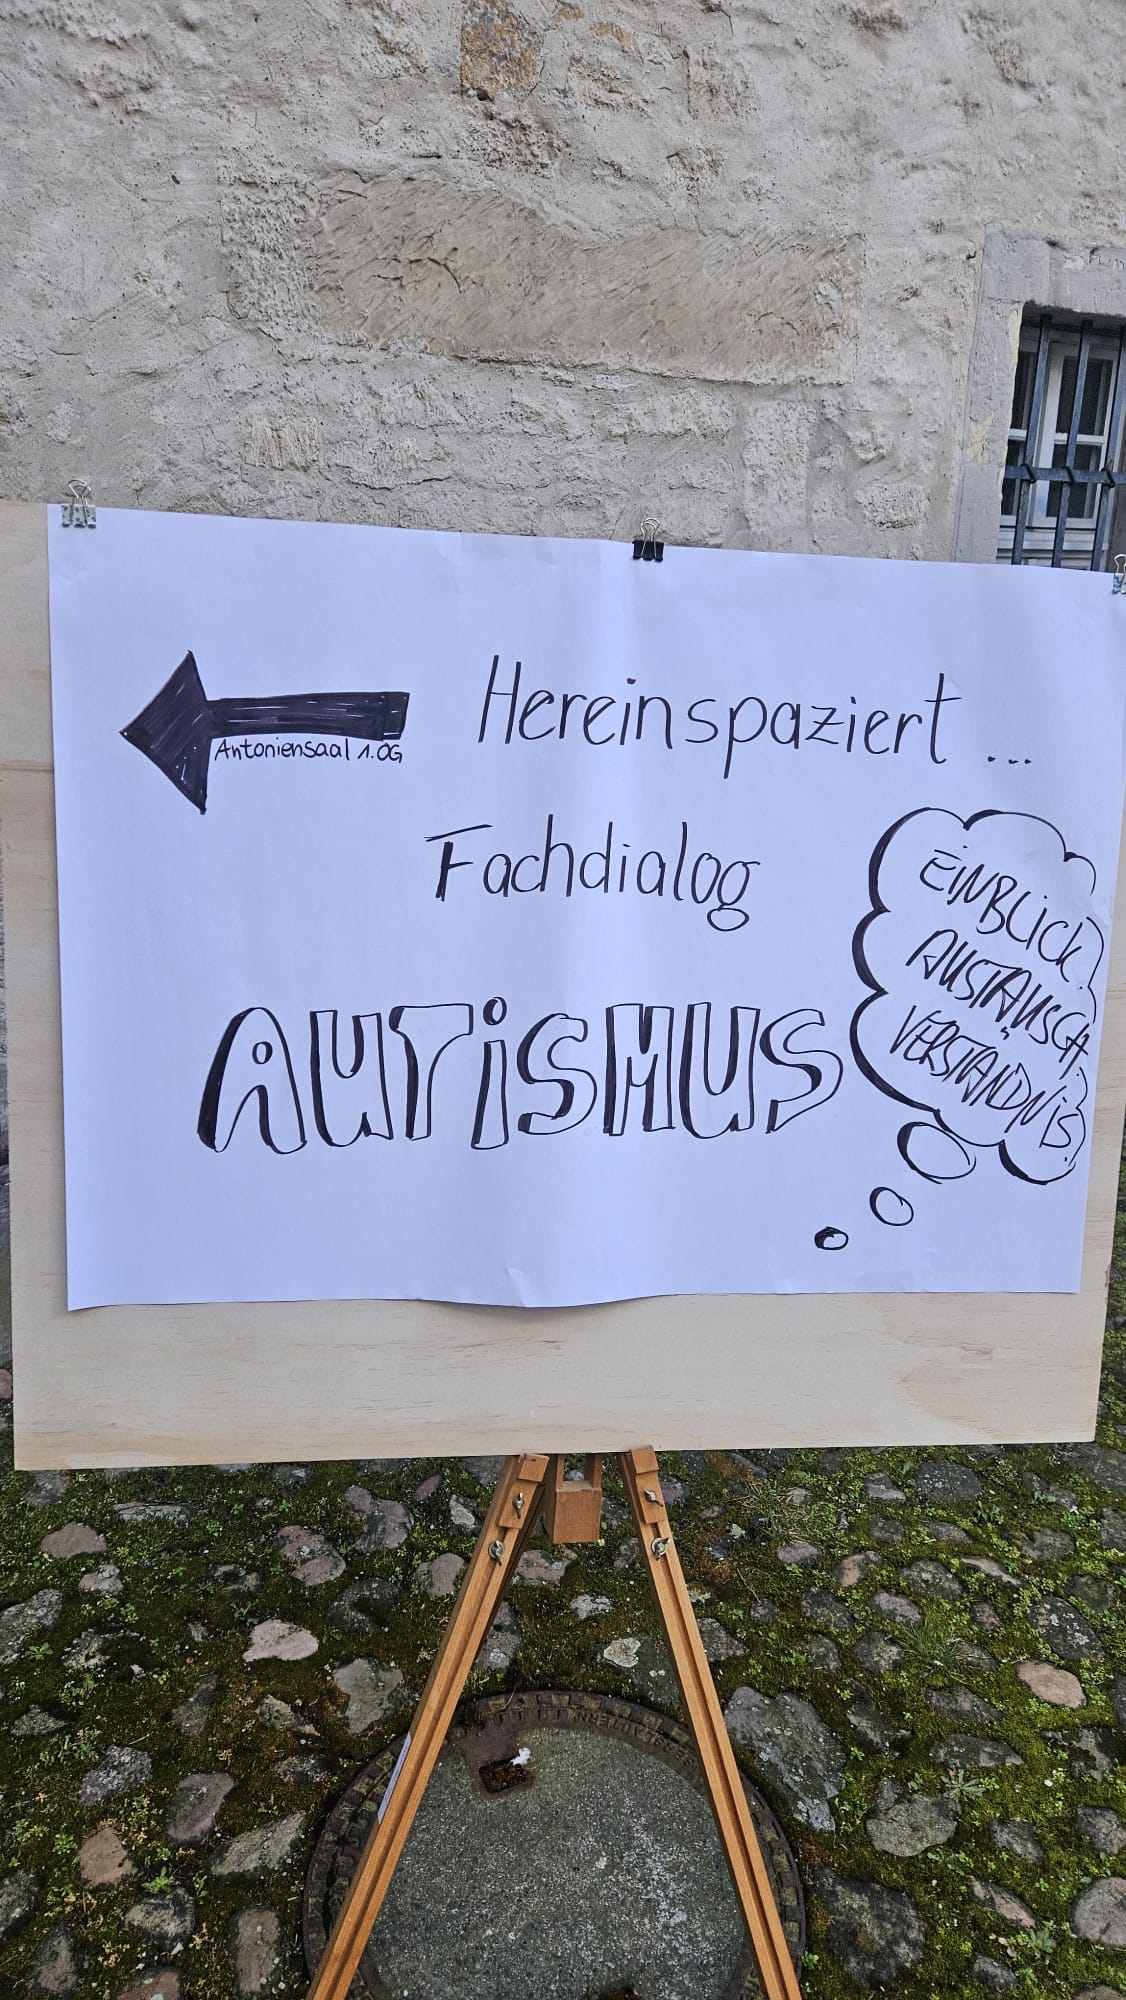 Hereinspaziert ...
Antoniensaal 1.OG
Fachdialog
AUTiSMUS
EiNBLick!
AUSTAUSCH
VERSTÄNDNiS!